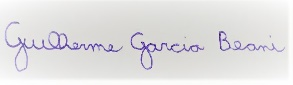 Guilherme Garcia Beani